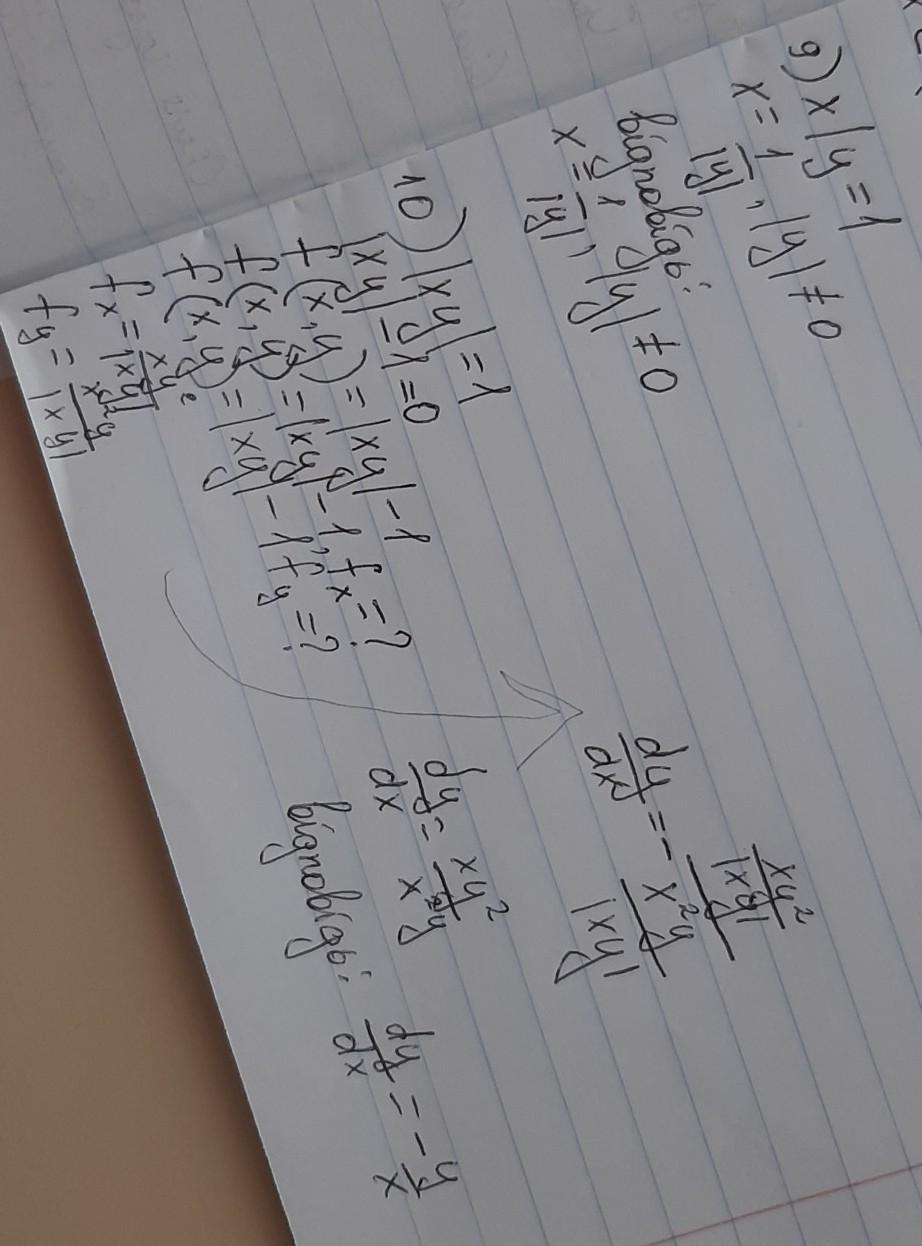 9) x|y=1
x=1/|y|, |y|≠0
відповідь:
x=1/|y|, |y|≠0
10) |xy|=1
|xy|-1=0
f(x,y)=|xy|-1
f(x,y)=|xy|-1, fx=?
f(x,y)=|xy|-1 fy=?
fx=xy²/|xy|
fy=x²y/|xy|
dy/dx=-(xy²/|xy|)/(x²y/|xy|)
dy/dx=xy²/x²y
відповідь: dy/dx=-y/x